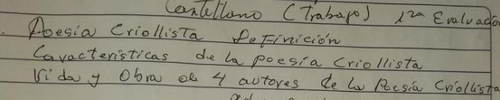 Castellano (Trabajo) 1ra Evaluación
Poesía Criollista Definición
Características de la poesía criollista
Vida y Obra de 4 autores de la Poesía Criollista